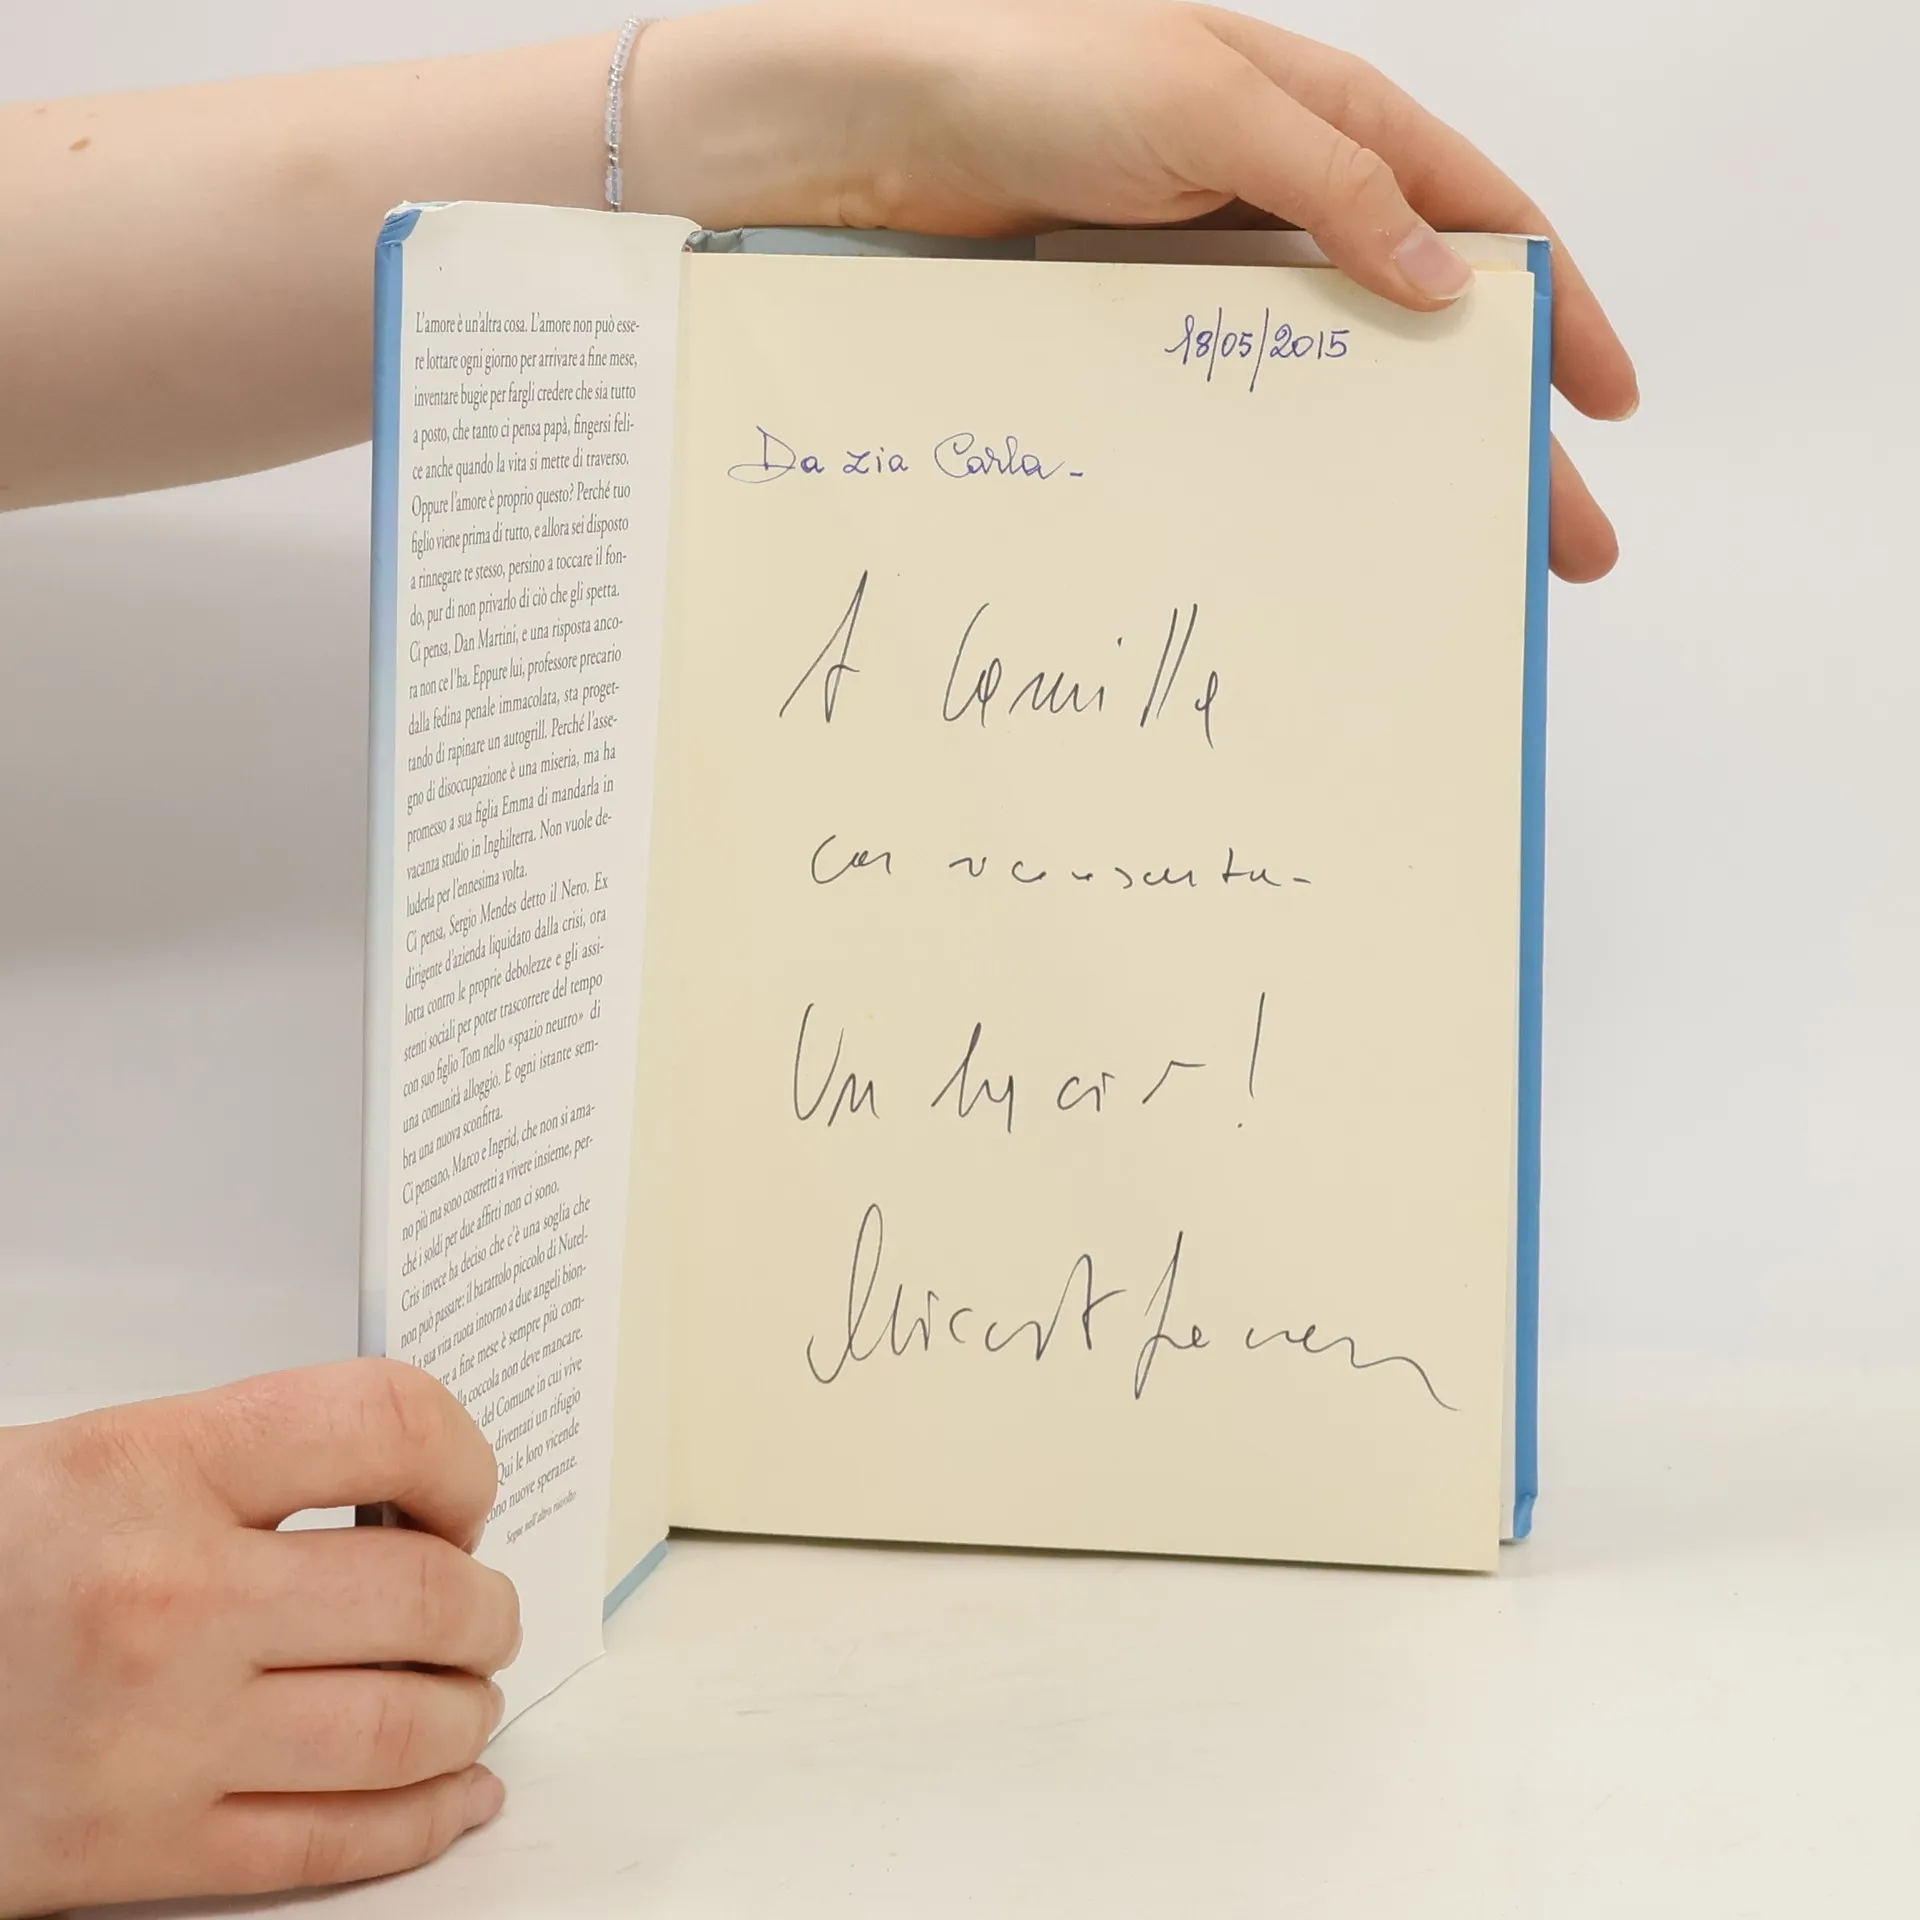 L'amore è un'altra cosa. L'amore non può esse-
re lottare ogni giorno per arrivare a fine mese,
inventare bugie per fargli credere che sia tutto
a posto, che tanto ci pensa papà, fingersi feli-
ce anche quando la vita si mette di traverso.
Oppure l'amore è proprio questo? Perché tuo
figlio viene prima di tutto, e allora sei disposto
a rinnegare te stesso, persino a toccare il fon-
do, pur di non privarlo di ciò che gli spetta.
Ci pensa, Dan Martini, e una risposta anco-
ra non ce l'ha. Eppure lui, professore precario
dalla fedina penale immacolata, sta proget-
tando di rapinare un autogrill. Perché l'asse-
gno di disoccupazione è una miseria, ma ha
promesso a sua figlia Emma di mandarla in
vacanza studio in Inghilterra. Non vuole de-
luderla per l'ennesima volta.
Ci pensa, Sergio Mendes detto il Nero. Ex
dirigente d'azienda liquidato dalla crisi, ora
lotta contro le proprie debolezze e gli assi-
stenti sociali per poter trascorrere del tempo
con suo figlio Tom nello «spazio neutro» di
una comunità alloggio. E ogni istante sem-
bra una nuova sconfitta.
Ci pensano, Marco e Ingrid, che non si ama-
no più ma sono costretti a vivere insieme, per-
ché i soldi per due affitti non ci sono.
Cris invece ha deciso che c'è una soglia che
non può passare: il barattolo piccolo di Nutel-
La sua vita ruota intorno a due angeli bion-
a fine mese è sempre più com-
coccola non deve mancare.
del Comune in cui vive
diventati un rifugio
Qui le loro vicende
nuove speranze.
Segue nell'altro risvolto
18/05/2015
Da zia Carla-
A Camilla
con
Un
!